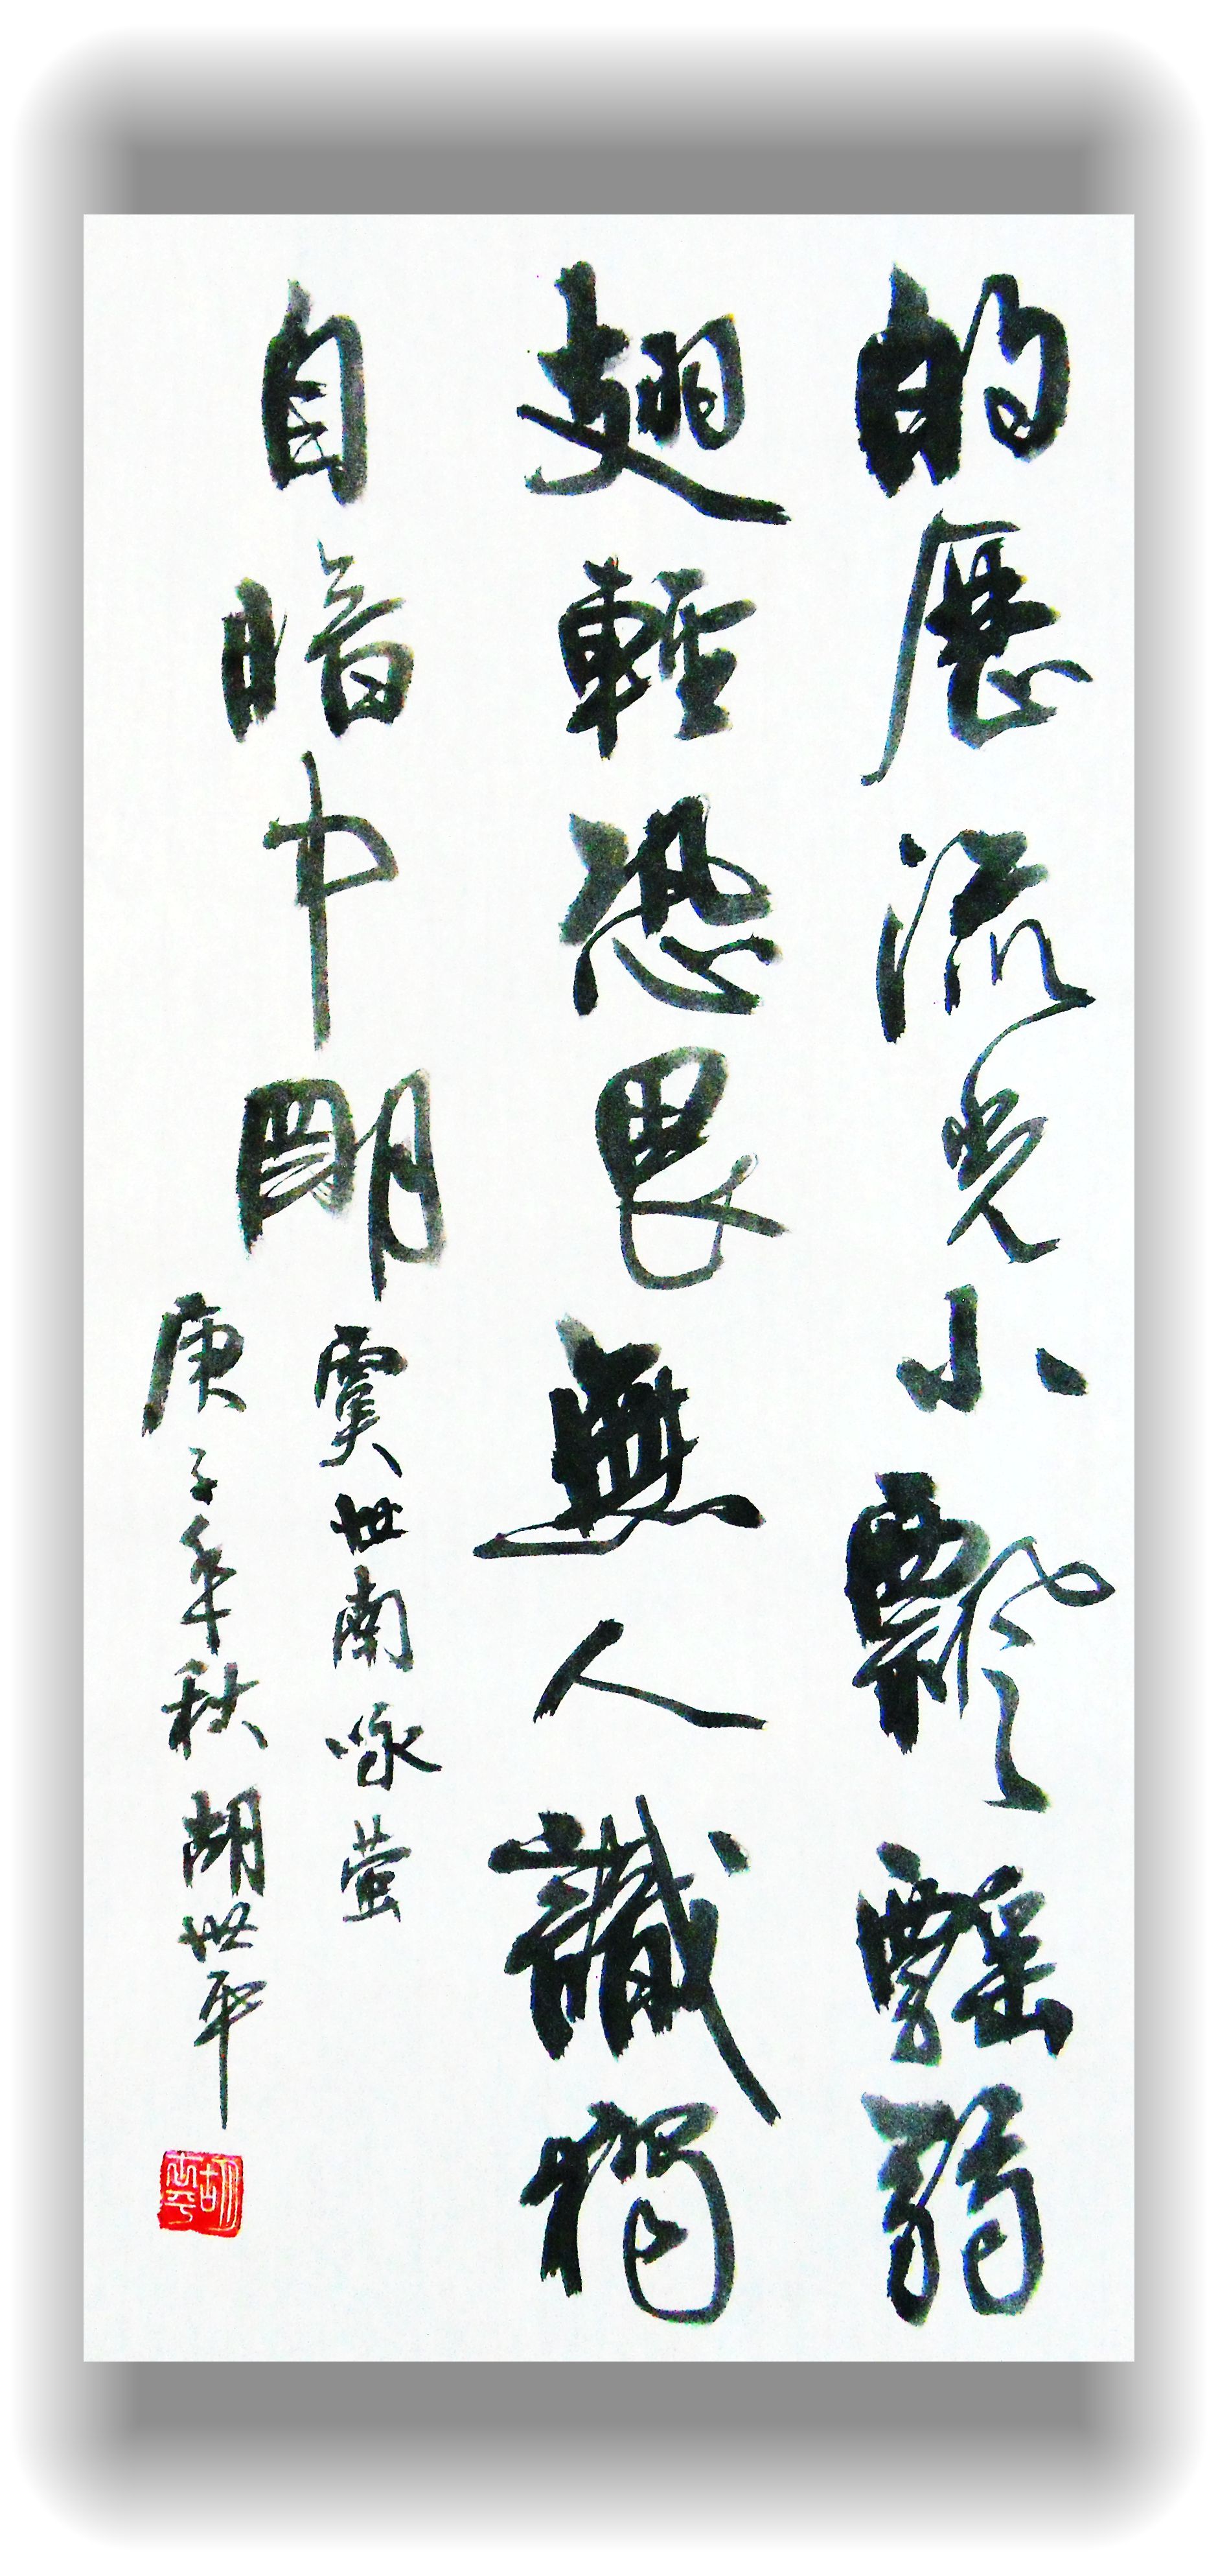 的歷流光小飄颻弱
翅輕恐畏無人識獨
自暗中明
虞世南咏萤
庚子年秋胡世平
胡世平